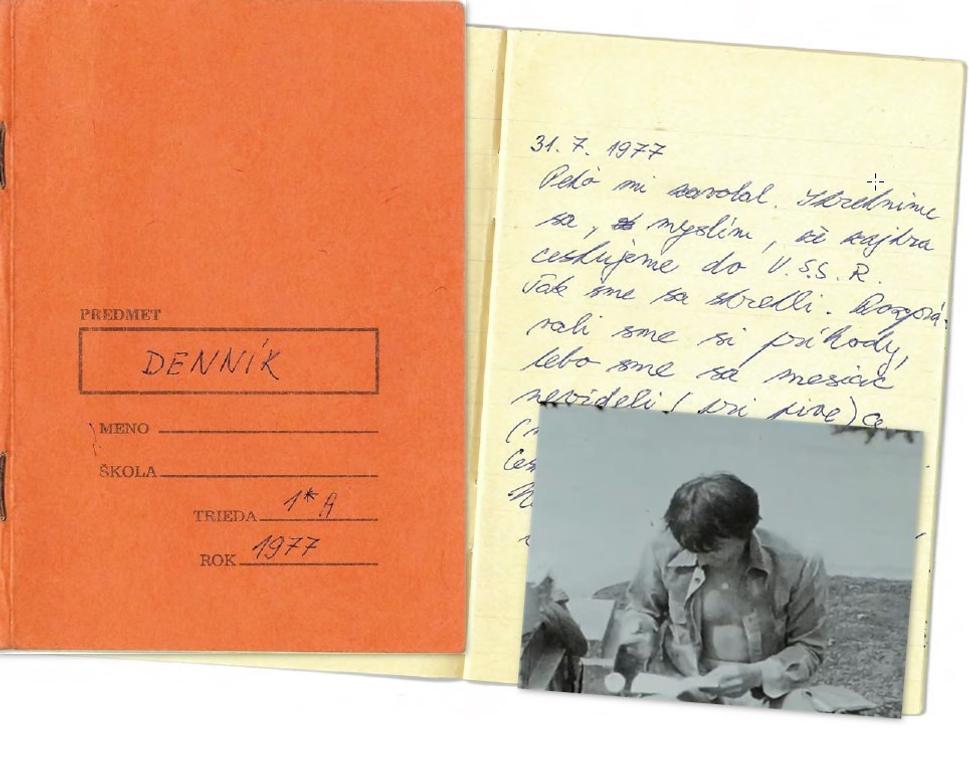 PREDMET
DENNÍK
MENO
ŠKOLA
TRIEDA 1*A
ROK 1977
31. 7. 1977
Peťo mi zavolal. Stretnime
sa, myslím, že zajtra
cestujeme do V.S.S.R.
Tak sme sa stretli. Rozprá-
vali sme si príhody,
lebo sme sa mesiac
nevideli (pri pive)